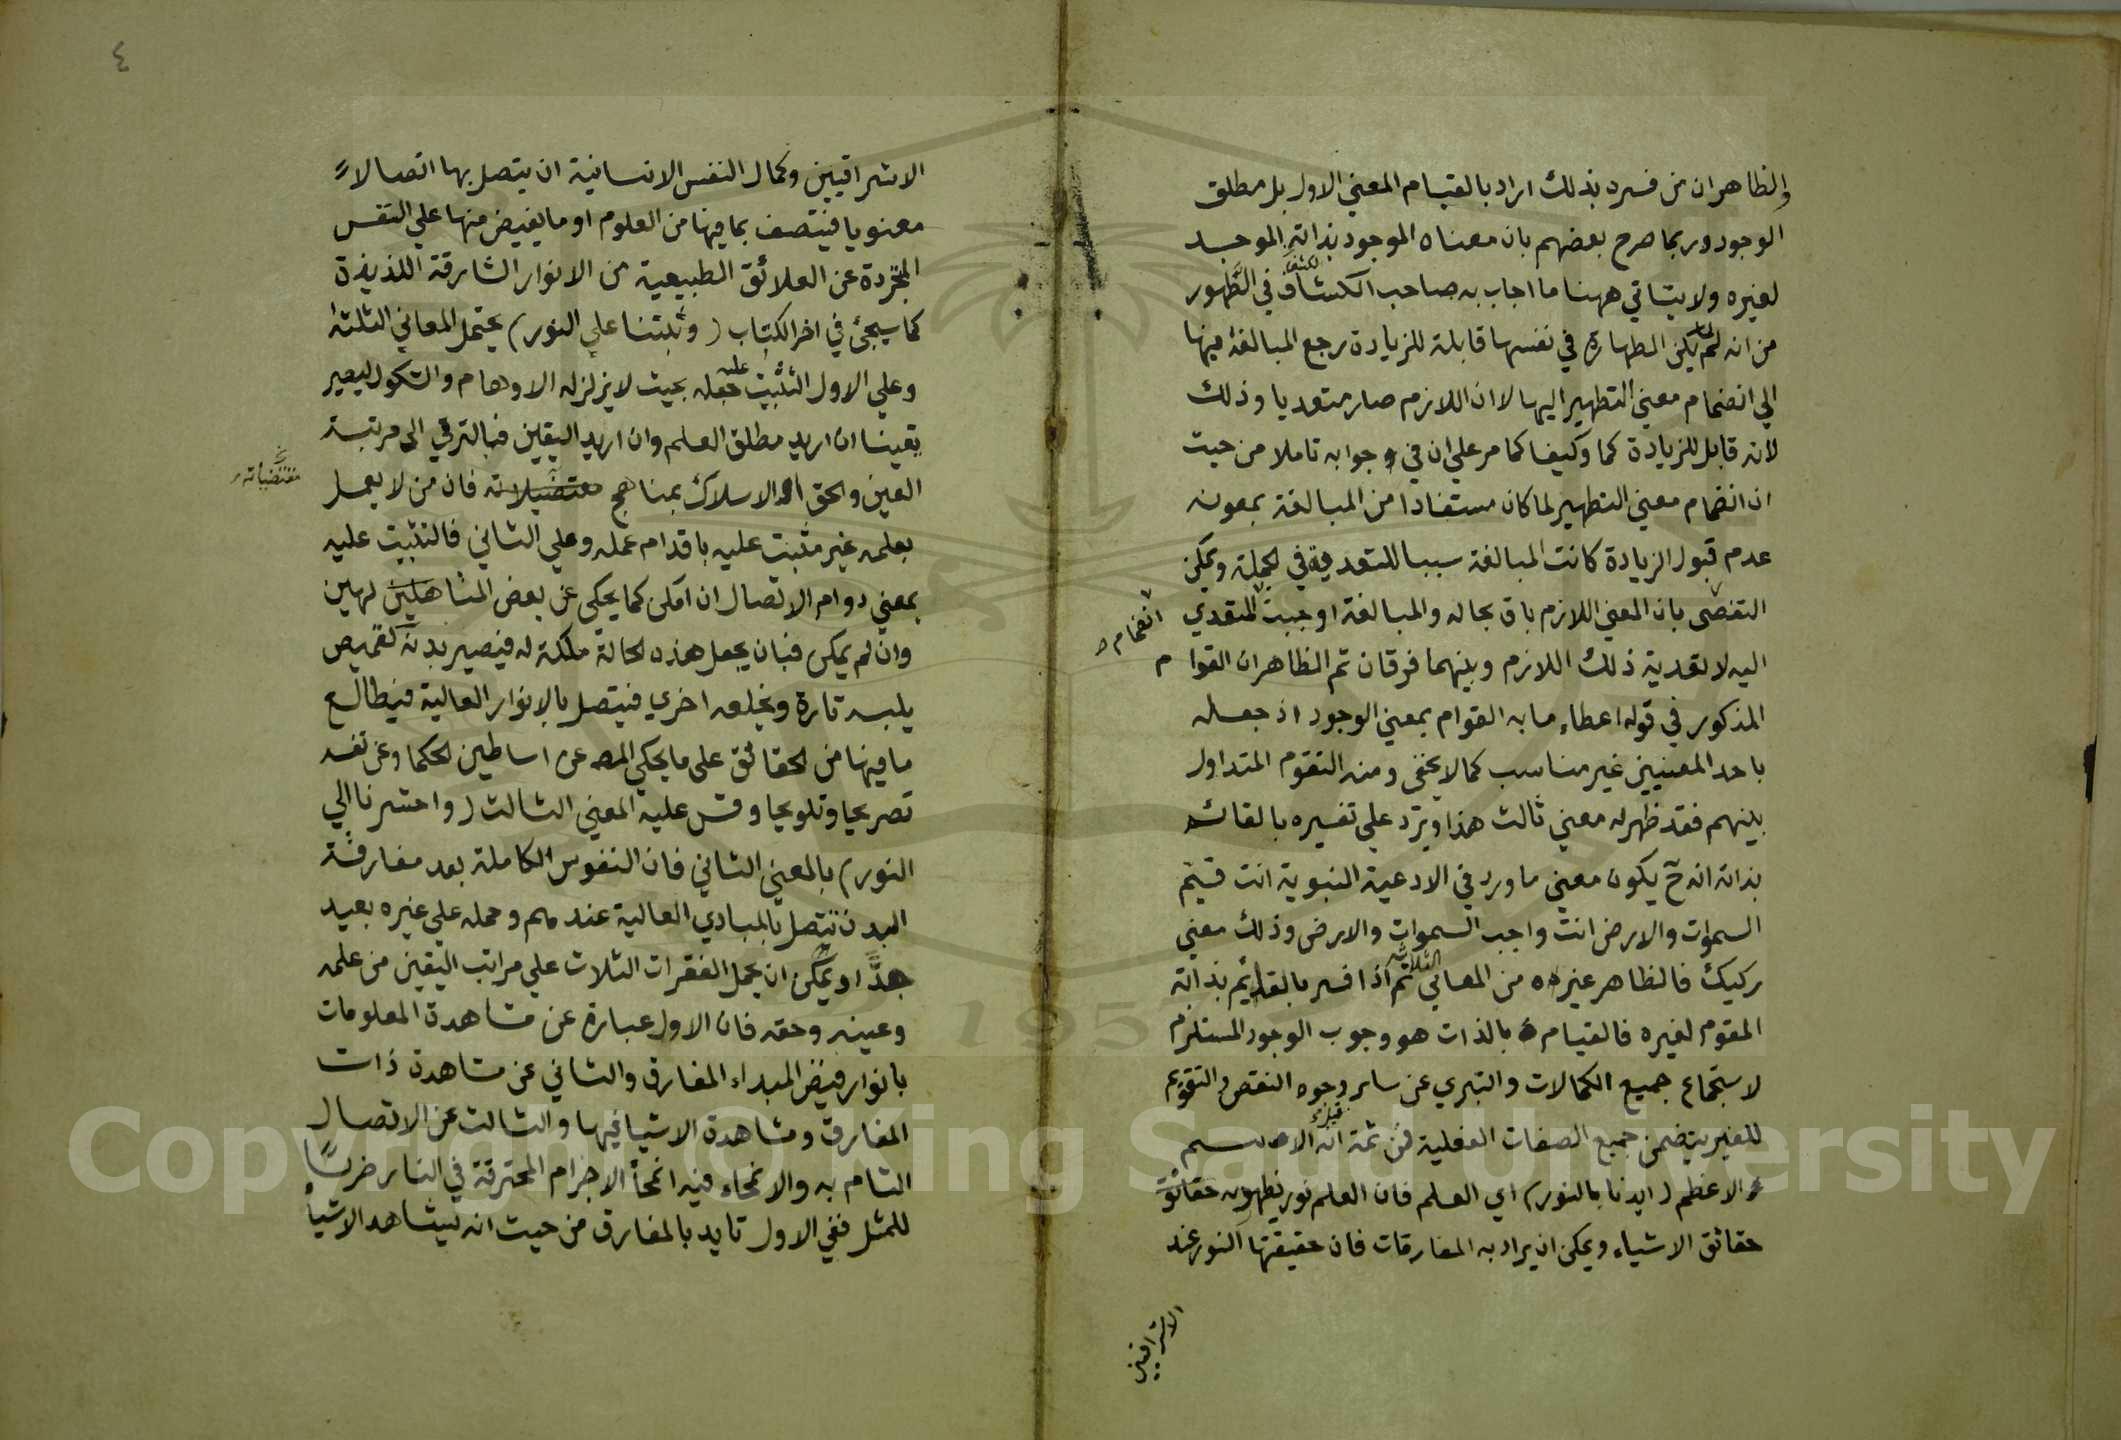 والظاهر ان من فسره بذلك اراد بالقيام المعني الاول بل مطلق
الوجود وربما صرح بعضهم بان معناه الموجود بذاته الموجد
لغيره ولا يتاتي ههنا ما اجاب به صاحب الكشاف في الطهور
من انه لما لم يكن الطهارة في نفسها قابلة للزيادة رجع المبالغة فيها
الي انضمام معني التطهير اليها لا ان اللازم صار متعديا وذلك
لانه قابل للزيادة كما وكيفا كما مر علي ان في جوابه تاملا من حيث
ان انضمام معني التطهير لما كان مستفادا من المبالغة بمعونه
عدم قبول الزيادة كانت المبالغة سببا للتعدية في الجملة ويمكن
التفصي بان المعني اللازم باق بحاله والمبالغة اوجبت المتعدي
انضمام
اليه لا تعدية ذلك اللازم وبينهما فرقان ثم الظاهر ان القوام
المذكور في قوله اعطاء ما به القوام بمعني الوجود اذ جعله
باحد المعنيين غير مناسب كما لا يخفى ومنه التقوم المتداول
بينهم فقد ظهر له معني ثالث هذا ويرد علي تفسيره بالقائم
بذاته انه ح يكون معني ما ورد في الادعية النبوية انت قيم
السموات والارض انت واجب السموات والارض وذلك معني
ركيك فالظاهر غيره من المعاني الثلاثة ثم اذا فسر بالقائم بذاته
المقوم لغيره فالقيام بالذات هو وجوب الوجود المستلزم
لاستجماع جميع الكمالات والتبري عن ساير وجوه النقص والتقويم
للغير يتضمن جميع الصفات الفعلية فمن ثمة قيل انه الاسم
الاعظم ( ايدنا بالنور ) اي العلم فان العلم نور يظهر به حقائق
حقائق الاشياء ويمكن ان يراد به المفارقات فان حقيقتها النور عند
الاشراقيين
٤
الاشراقيين وكمال النفس الانسانية ان يتصل بها اتصالا
معنويا فيتصف بما فيها من العلوم او ما يفيض منها علي النفس
المجردة عن العلائق الطبيعية من الانوار الشارقة اللذيذة
كما سيجئ في اخر الكتاب ( وثبتنا علي النور ) يحتمل المعاني الثلثة
وعلي الاول التثبيت عليه جعله بحيث لا يزلزله الاوهام والشكوك ليصير
يقينا ان اريد مطلق العلم وان اريد اليقين فبالترقي الى مرتبة
العين والحق او الاسلاك بمناهج مقتضيلاته فان من لا يعمل
مقتضياته
بعلمه غير مثبت عليه باقدام عمله وعلي الثاني فالتثبيت عليه
بمعني دوام الاتصال ان امكن كما يحكى عن بعض المتاهلين لهين
وان لم يمكن فبان يجعل هذه الحالة ملكة له فيصير بدنه كقميص
يلبسه تارة ويخلعه اخري فيتصل بالانوار العالية فيطالع
ما فيها من الحقائق على ما يحكي المص عن اساطين الحكما وعن نفسه
تصريحا وتلويحا وقس عليه المعني الثالث ( واحشرنا الي
النور ) بالمعني الثاني فان النفوس الكاملة بعد مفارقة
البدن تتصل بالمبادي العالية عندهم وحمله علي غيره بعيد
جدا او يمكن ان يحمل الفقرات الثلاث علي مراتب اليقين من علمه
وعينه وحقه فان الاول عبارة عن مشاهدة المعلومات
بانوار فيض المبداء المفارق والثاني عن مشاهدة ذات
المفارق ومشاهدة الاشيا فيها والثالث عن الاتصال
التام به والانمحاء فيه انمحأ الاجرام المحترقة في النار ضربا
للمثل ففي الاول تايد بالمفارق من حيث انه ليشاهد الاشيأ
Copyright © King Saud University
195